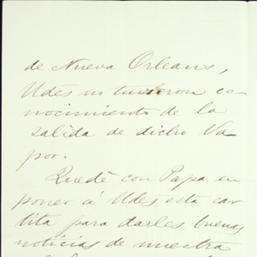 de Nueva Orleans,
Udes no tuvieron co-
nocimiento de la
salida de dicho Va-
por.
Quedé con Papa en
poner á Udes esta car
tita para darles buenas
noticias de nuestra